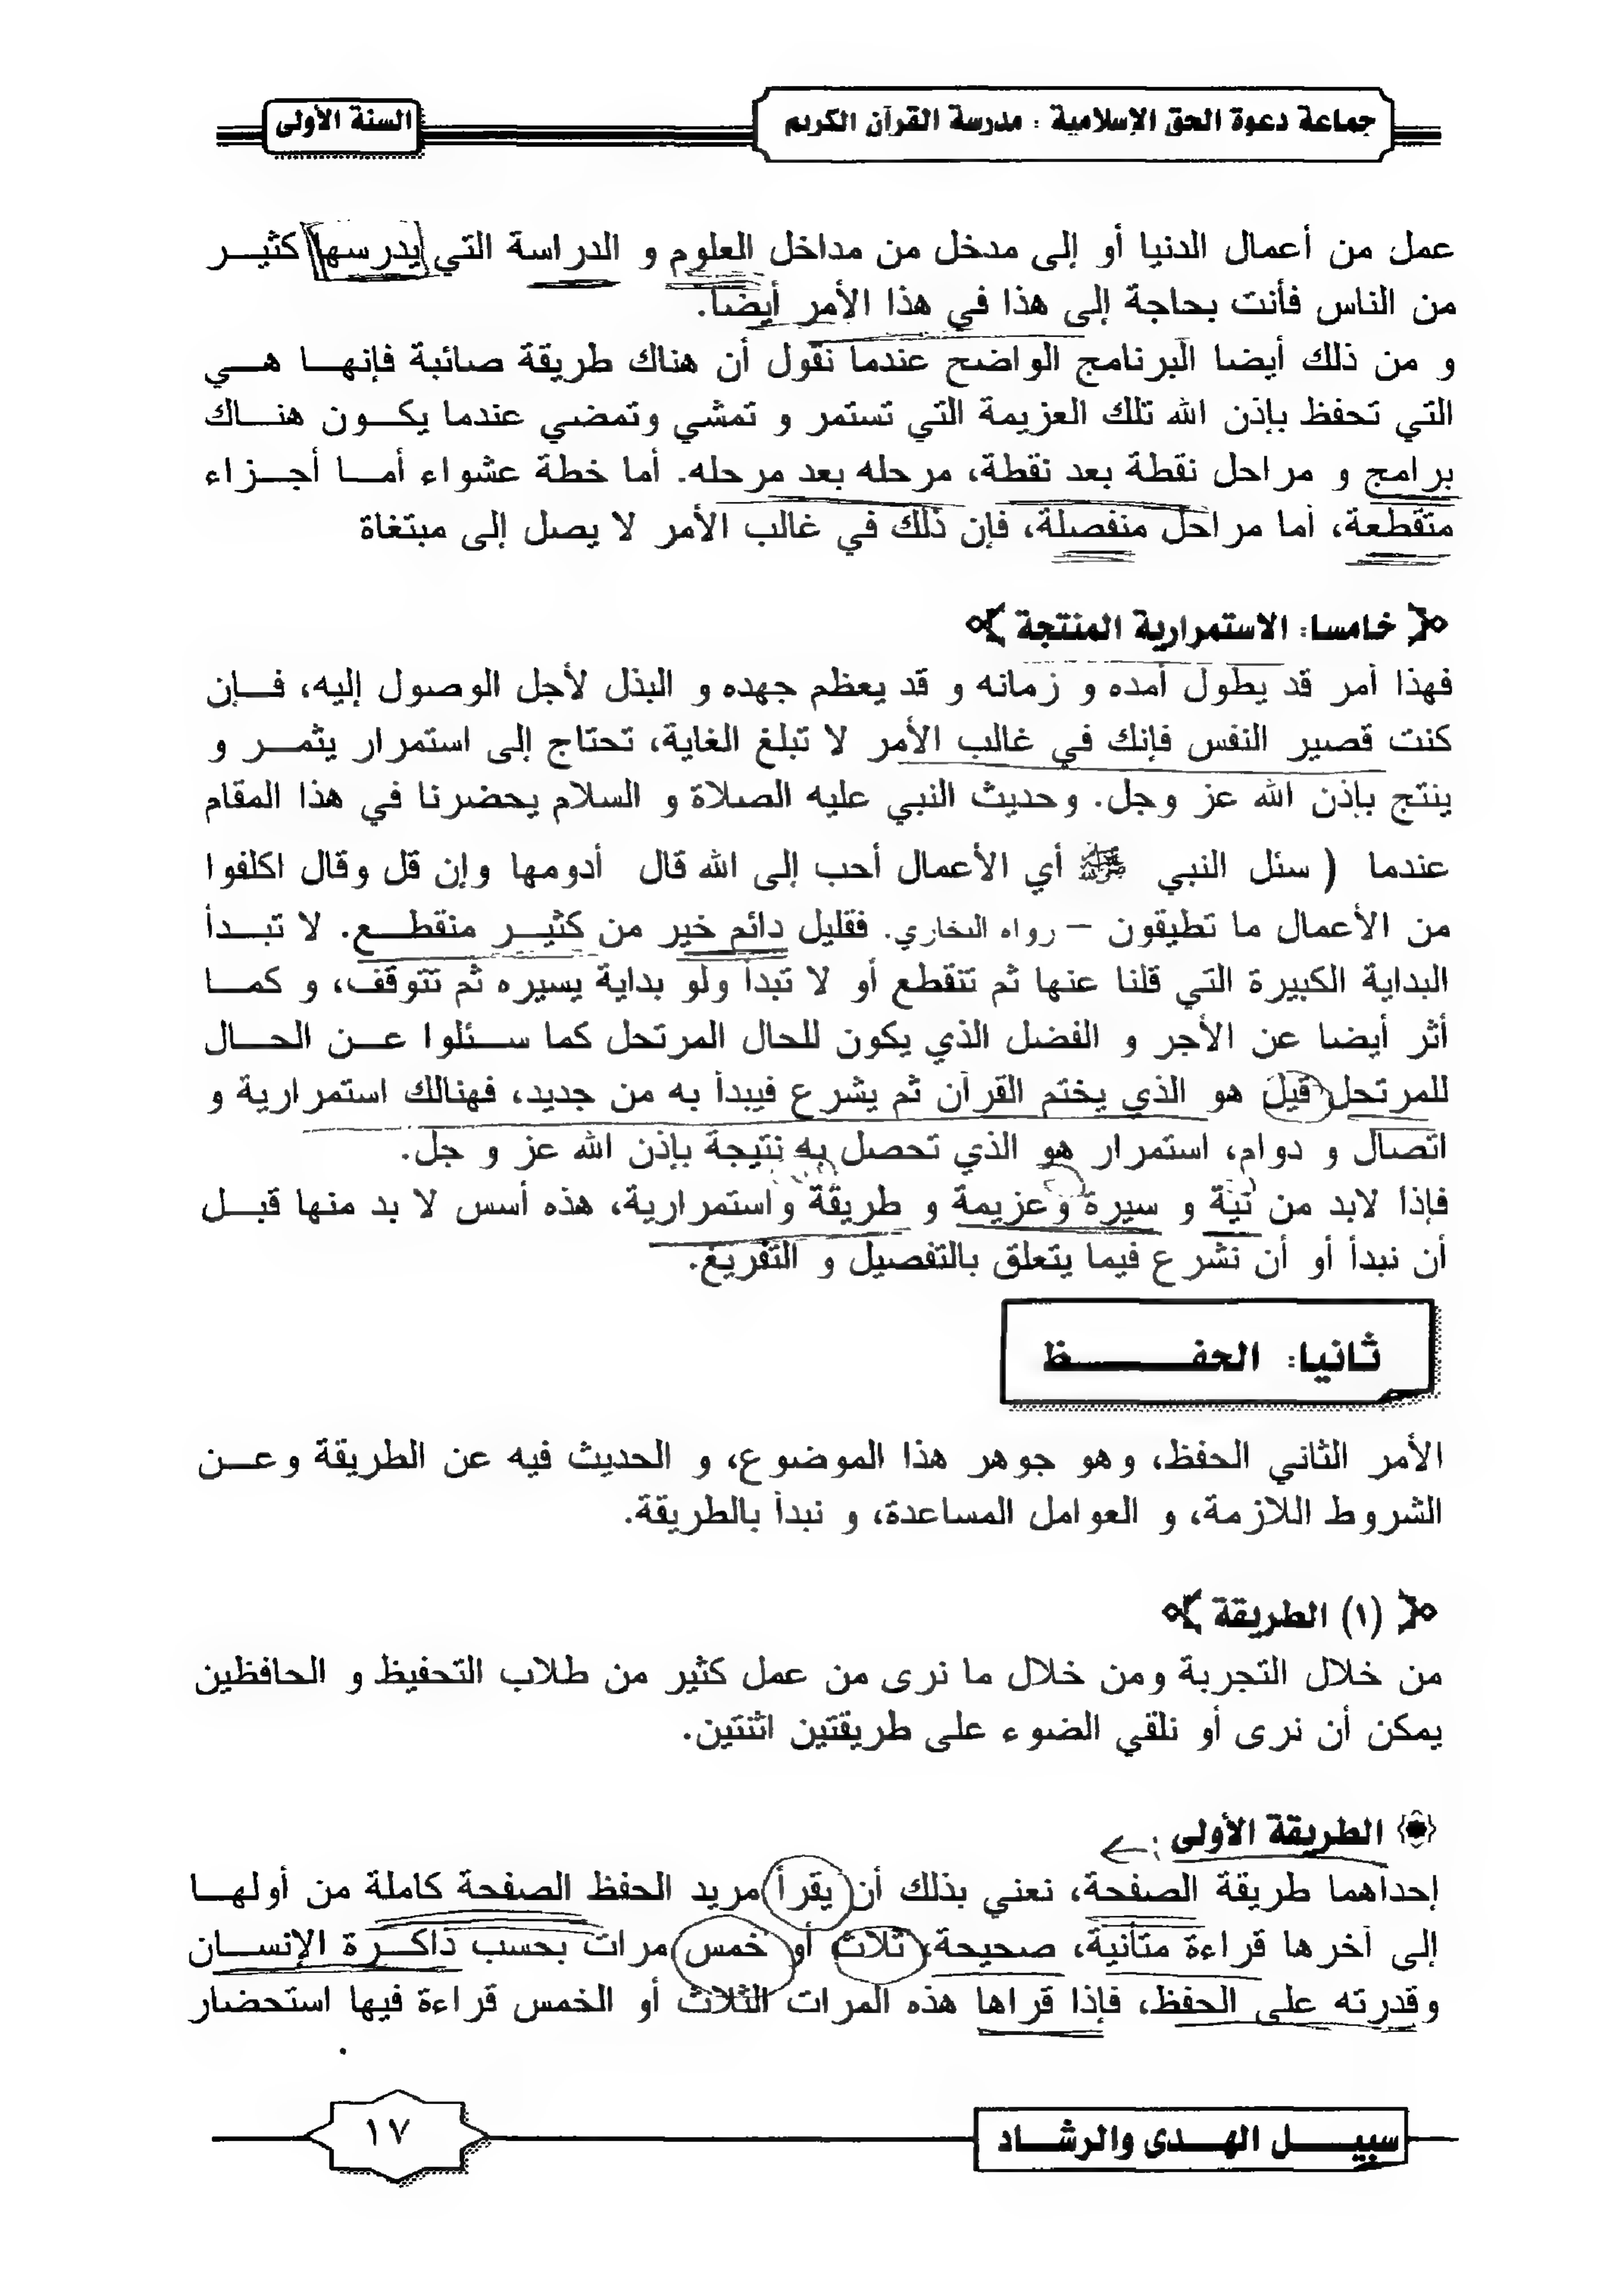 جماعة دعوة الحق الإسلامية : مدرسة القرآن الكريم
السنة الأولى
عمل من أعمال الدنيا أو إلى مدخل من مداخل العلوم و الدراسة التي يدرسها كثير
من الناس فأنت بحاجة إلى هذا في هذا الأمر أيضا.
و من ذلك أيضا البرنامج الواضح عندما نقول أن هناك طريقة صائبة فإنها هي
التي تحفظ بإذن الله تلك العزيمة التي تستمر و تمشي وتمضي عندما يكون هناك
برامج و مراحل نقطة بعد نقطة، مرحله بعد مرحله. أما خطة عشواء أما أجزاء
متقطعة، أما مراحل منفصلة، فإن ذلك في غالب الأمر لا يصل إلى مبتغاة
خامسا: الاستمرارية المنتجة
فهذا أمر قد يطول أمده و زمانه و قد يعظم جهده و البذل لأجل الوصول إليه، فإن
كنت قصير النفس فإنك في غالب الأمر لا تبلغ الغاية، تحتاج إلى استمرار يثمر و
ينتج بإذن الله عز وجل. وحديث النبي عليه الصلاة و السلام يحضرنا في هذا المقام
عندما ( سئل النبي ﷺ أي الأعمال أحب إلى الله قال أدومها وإن قل وقال اكلفوا
من الأعمال ما تطيقون – رواه البخاري. فقليل دائم خير من كثير منقطع. لا تبدأ
البداية الكبيرة التي قلنا عنها ثم تتقطع أو لا تبدأ ولو بداية يسيره ثم تتوقف، و كما
أثر أيضا عن الأجر و الفضل الذي يكون للحال المرتحل كما سئلوا عن الحال
للمرتحل قيل هو الذي يختم القرآن ثم يشرع فيبدأ به من جديد، فهنالك استمرارية و
اتصال و دوام، استمرار هو الذي تحصل به نتيجة بإذن الله عز و جل.
فإذا لابد من نية و سيرة وعزيمة و طريقة واستمرارية، هذه أسس لا بد منها قبل
أن نبدأ أو أن نشرع فيما يتعلق بالتفصيل و التفريغ.
ثانيا: الحفظ
الأمر الثاني الحفظ، وهو جوهر هذا الموضوع، و الحديث فيه عن الطريقة وعن
الشروط اللازمة، و العوامل المساعدة، و نبدأ بالطريقة.
(١) الطريقة
من خلال التجربة ومن خلال ما نرى من عمل كثير من طلاب التحفيظ و الحافظين
يمكن أن نرى أو نلقي الضوء على طريقتين اثنتين.
الطريقة الأولى :
إحداهما طريقة الصفحة، نعني بذلك أن يقرأ مريد الحفظ الصفحة كاملة من أولها
إلى آخرها قراءة متأنية، صحيحة، ثلاث أو خمس مرات بحسب ذاكرة الإنسان
وقدرته على الحفظ، فإذا قراها هذه المرات الثلاث أو الخمس قراءة فيها استحضار
سبيل الهدى والرشاد
١٧